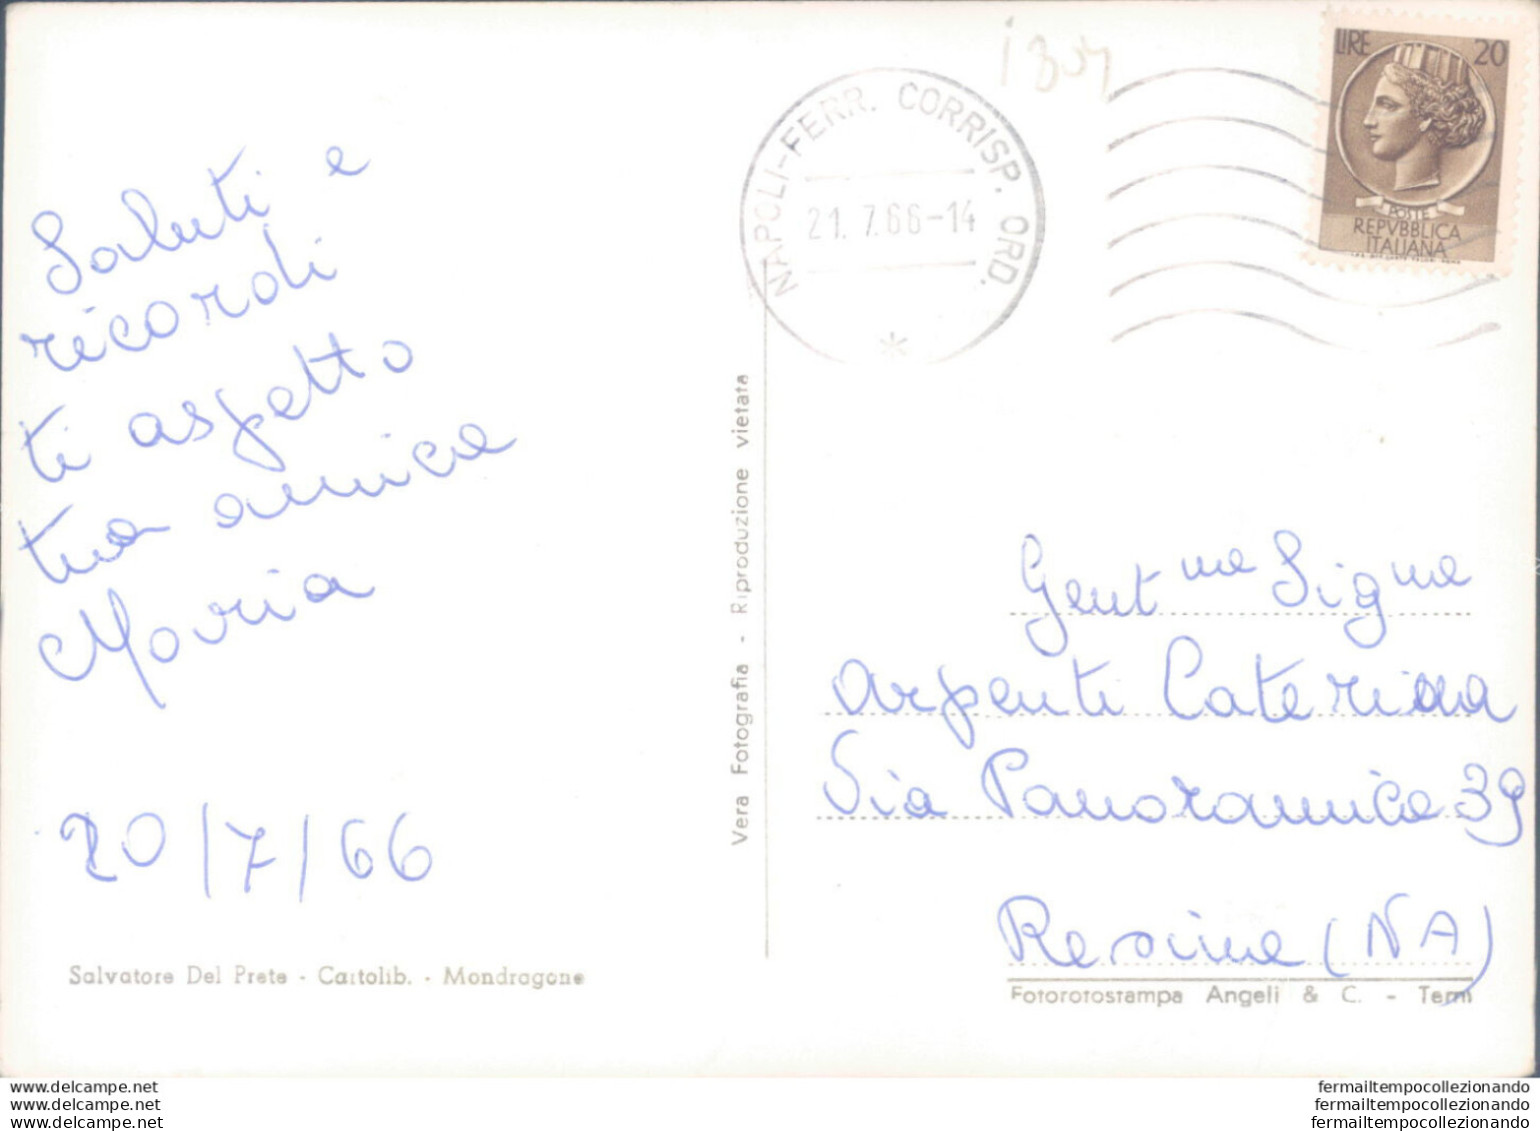 Saluti e
ricordi
ti aspetto
tua amica
Maria
20/7/66
Salvatore Del Prete - Cartolib. - Mondragone
Vera Fotografia - Riproduzione vietata
NAPOLI-FERR. CORRISP. ORD.
21.7.66-14
LIRE 20
POSTE
REPVBBLICA
ITALIANA
Gent ma Sig na
Arpenti Caterina
Via Panoramica 39
Resina (NA)
Fotorotostampa Angeli & C. - Terni
www.delcampe.net
www.delcampe.net
www.delcampe.net
fermailtempocollezionando
fermailtempocollezionando
fermailtempocollezionando